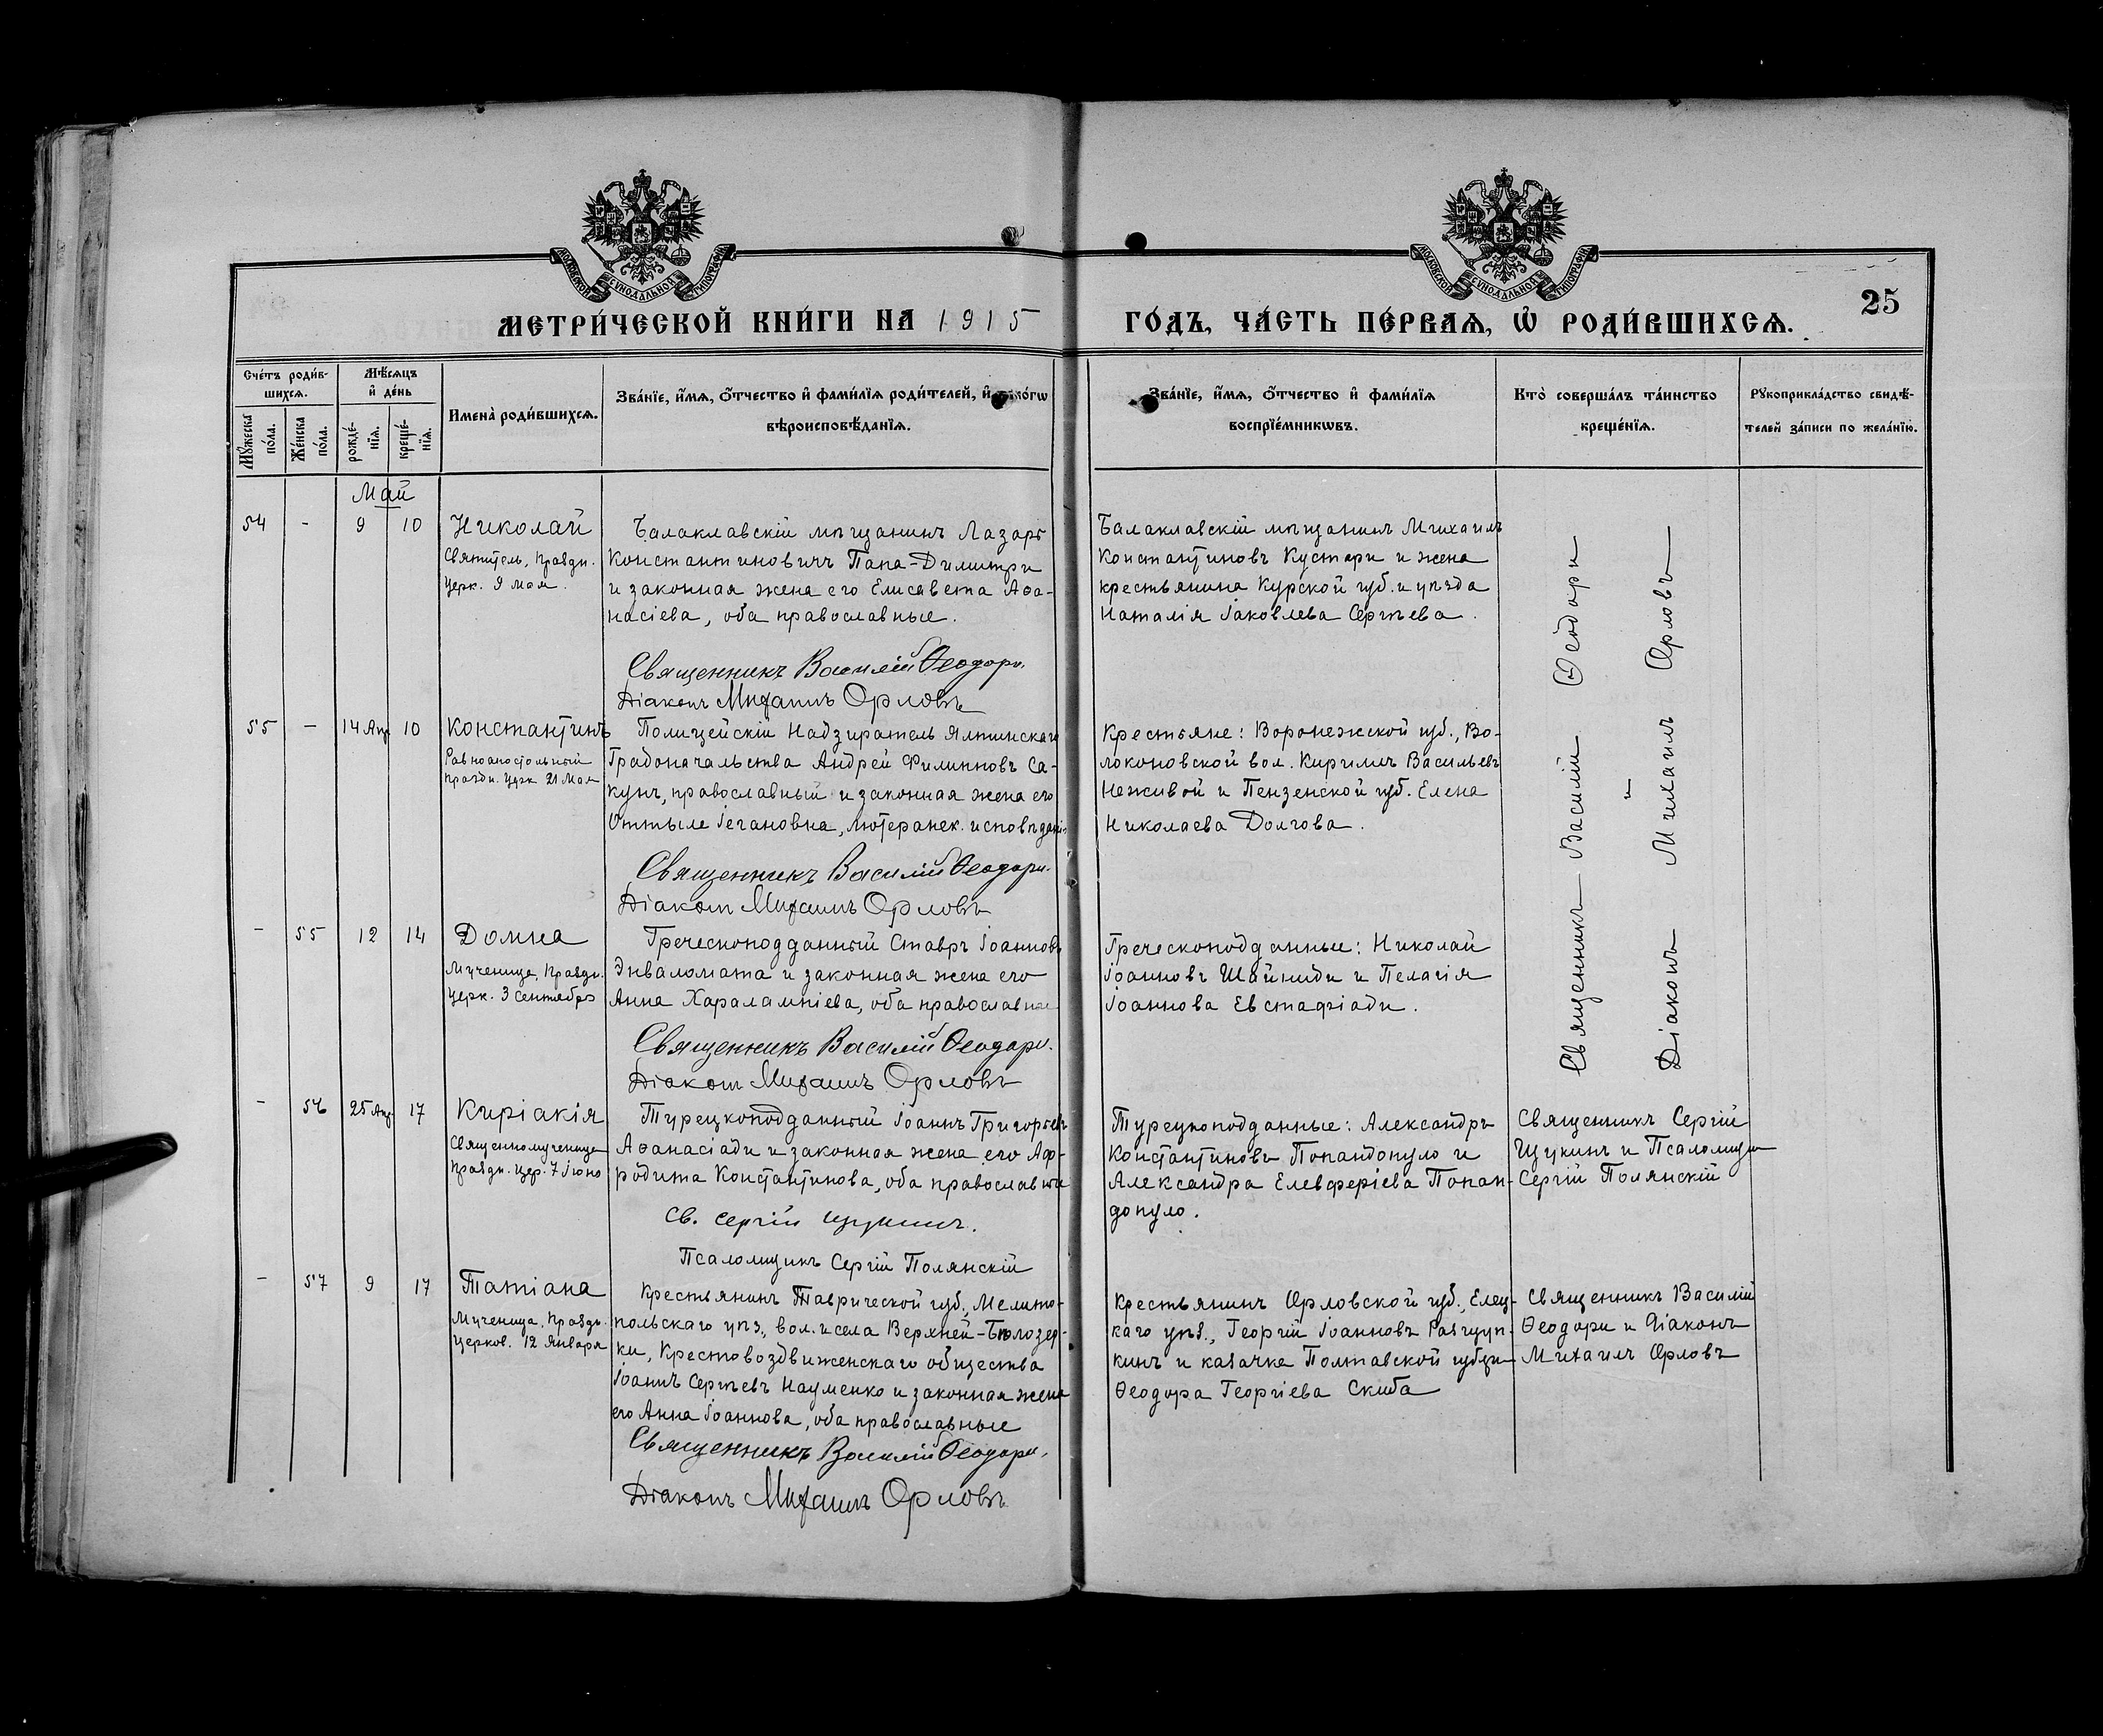 МОСКОВСКОЙ СѴНОДАЛЬНОЙ ТИПОГРАФІИ
МОСКОВСКОЙ СѴНОДАЛЬНОЙ ТИПОГРАФІИ
МЕТРИ́ЧЕСКОЙ КНИ́ГИ НА 1915
ГО́ДЪ, ЧА́СТЬ ПЕ́РВАѦ, Ѽ РОДИ́ВШИХСѦ.
25
Сче́тъ роди́в-
шихсѧ.
Мꙋ́жеска
по́ла.
Же́нска
по́ла.
Мѣ́сѧцъ
и҆ де́нь
рожде́-
нїѧ.
креще́-
нїѧ.
Имена̀ роди́вшихсѧ.
Зва́нїе, и҆́мѧ, о҆́тчество и҆ фами́лїѧ роди́телей, и҆ како́гѡ
вѣроисповѣ́данїѧ.
Зва́нїе, и҆́мѧ, о҆́тчество и҆ фами́лїѧ
воспрїе́мникѡвъ.
Кто̀ соверша́лъ та́инство
креще́нїѧ.
Рꙋкоприкла́дство свидѣ́-
телей за́писи по жела́нїю.
Май
54 - 9 10
Николай
Святитель, Праздн.
Церк. 9 Мая.
Балаклавскій мѣщанинъ Лазарь
Константиновичъ Папа-Димитри
и законная жена его Елисавета Аѳа-
насіева, оба православные.
Священникъ Василій Ѳеодори.
Діаконъ Михаилъ Орловъ
Балаклавскій мѣщанинъ Михаилъ
Константиновъ Кустари и жена
крестьянина Курской губ. и уѣзда
Наталія Іаковлева Сергѣева.
Священникъ Василій Ѳеодори
и
Діаконъ Михаилъ Орловъ
55 - 14 Апр 10
Константинъ
Равноапостольный
празди. Церк 21 Мая
Полицейскій Надзиратель Ялтинскаго
Градоначальства Андрей Филипповъ Са-
кунъ, православный и законная жена его
лютеранск. исповѣдані
Священникъ Василій Ѳеодори.
Діаконъ Михаилъ Орловъ
Крестьяне: Воронежской губ., Во-
локоновской вол. Кириллъ Васильевъ
Неживой и Пензенской губ. Елена
Николаева Долгова.
- 55 12 14
Домна
Мученица, Праздн.
Церк. 3 Сентября
Греческоподданный Ставръ Іоанновъ
Энваломата и законная жена его
Анна Харалампіева, оба православные
Священникъ Василій Ѳеодори.
Діаконъ Михаилъ Орловъ
Греческоподданные: Николай
Іоанновъ Шайниди и Пелагія
Іоаннова Евстафіади.
- 56 25 Апр. 17
Киріакія
Священномученица
Праздн. Цер. 7 Іюня
Турецкоподданный Іоаннъ Григорьевъ
Аѳанасіади и законная жена его Аф-
родита Константинова, оба православные
Св. Сергій Щукинъ.
Псаломщикъ Сергій Полянскій
Турецкоподданные: Александръ
Константиновъ Попандопуло и
Александра Елевферіева Попан-
допуло.
Священникъ Сергій
Щукинъ и Псаломщикъ
Сергій Полянскій
- 57 9 17
Татіана
Мученица, Праздн.
Церков. 12 Января
Крестьянинъ Таврической губ., Мелито-
польскаго уѣз., вол. и села Верхней-Бѣлозер-
ки, Крестовоздвиженскаго общества
Іоаннъ Сергѣевъ Науменко и законная жена
его Анна Іоаннова, оба православные
Священникъ Василій Ѳеодори.
Діаконъ Михаилъ Орловъ
Крестьянинъ Орловской губ., Елец-
каго уѣз., Георгій Іоанновъ Разщуп-
кинъ и казачка Полтавской губерн
Ѳеодора Георгіева Скиба
Священникъ Василій
Ѳеодори и Діаконъ
Михаилъ Орловъ